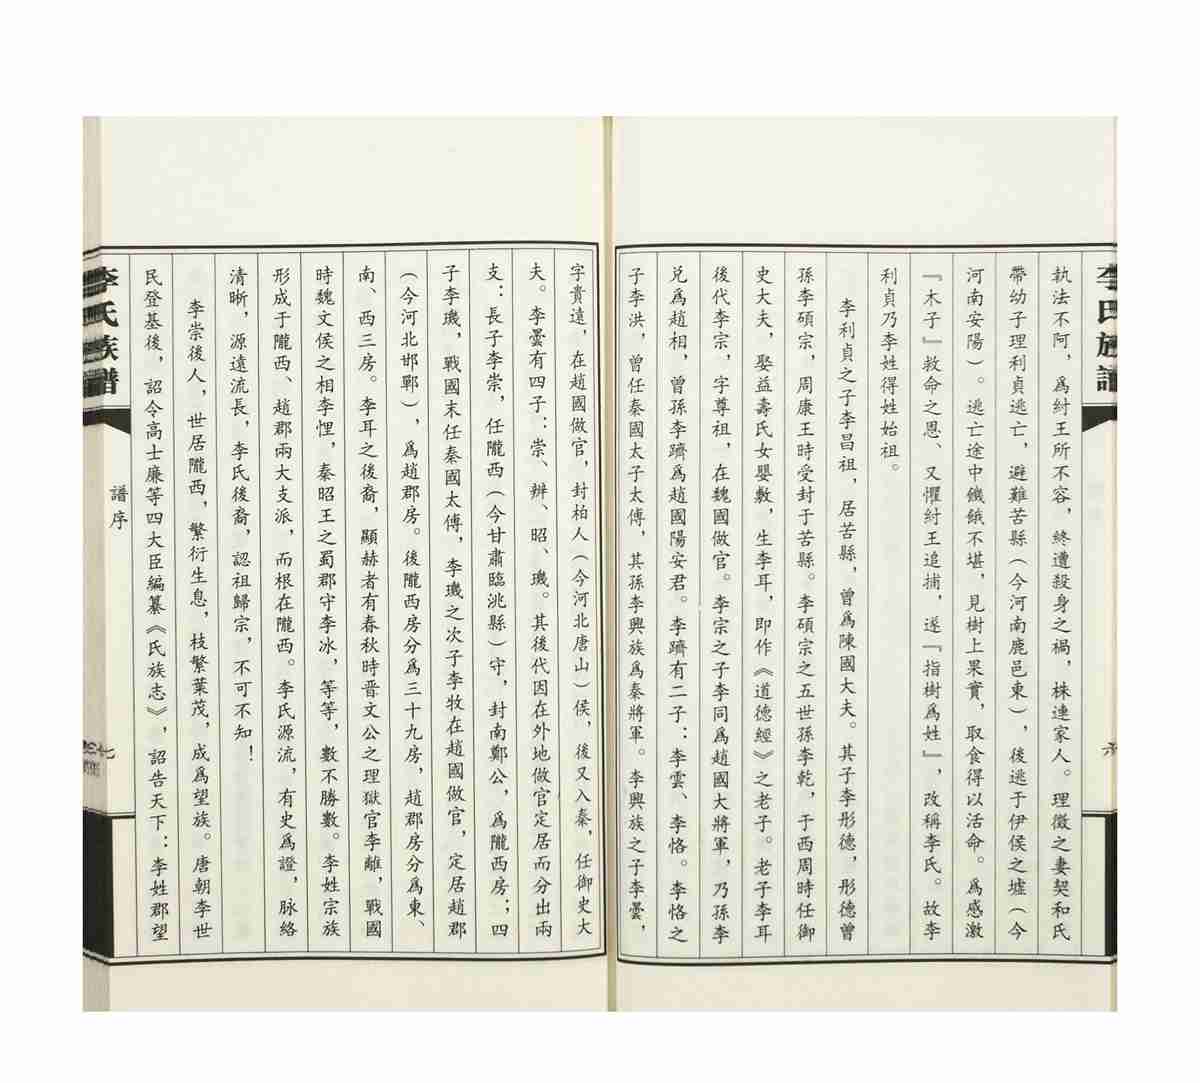 李氏族譜
六
執法不阿，爲紂王所不容，終遭殺身之禍，株連家人。理徵之妻契和氏
帶幼子理利貞逃亡，避難苦縣（今河南鹿邑東），後逃于伊侯之墟（今
河南安陽）。逃亡途中饑餓不堪，見樹上果實，取食得以活命。爲感激
『木子』救命之恩、又懼紂王追捕，遂『指樹爲姓』，改稱李氏。故李
利貞乃李姓得姓始祖。
李利貞之子李昌祖，居苦縣，曾爲陳國大夫。其子李彤德，彤德曾
孫李碩宗，周康王時受封于苦縣。李碩宗之五世孫李乾，于西周時任御
史大夫，娶益壽氏女嬰敷，生李耳，即作《道德經》之老子。老子李耳
後代李宗，字尊祖，在魏國做官。李宗之子李同爲趙國大將軍，乃孫李
兌爲趙相，曾孫李躋爲趙國陽安君。李躋有二子：李雲、李恪。李恪之
子李洪，曾任秦國太子太傅，其孫李興族爲秦將軍。李興族之子李曇，
字貴遠，在趙國做官，封柏人（今河北唐山）侯，後又入秦，任御史大
夫。李曇有四子：崇、辨、昭、璣。其後代因在外地做官定居而分出兩
支：長子李崇，任隴西（今甘肅臨洮縣）守，封南鄭公，爲隴西房；四
子李璣，戰國末任秦國太傅，李璣之次子李牧在趙國做官，定居趙郡
（今河北邯鄲），爲趙郡房。後隴西房分爲三十九房，趙郡房分爲東、
南、西三房。李耳之後裔，顯赫者有春秋時晋文公之理獄官李離，戰國
時魏文侯之相李悝，秦昭王之蜀郡守李冰，等等，數不勝數。李姓宗族
形成于隴西、趙郡兩大支派，而根在隴西。李氏源流，有史爲證，脉絡
清晰，源遠流長，李氏後裔，認祖歸宗，不可不知！
李崇後人，世居隴西，繁衍生息，枝繁葉茂，成爲望族。唐朝李世
民登基後，詔令高士廉等四大臣編纂《氏族志》，詔告天下：李姓郡望
李氏族譜
譜序
七